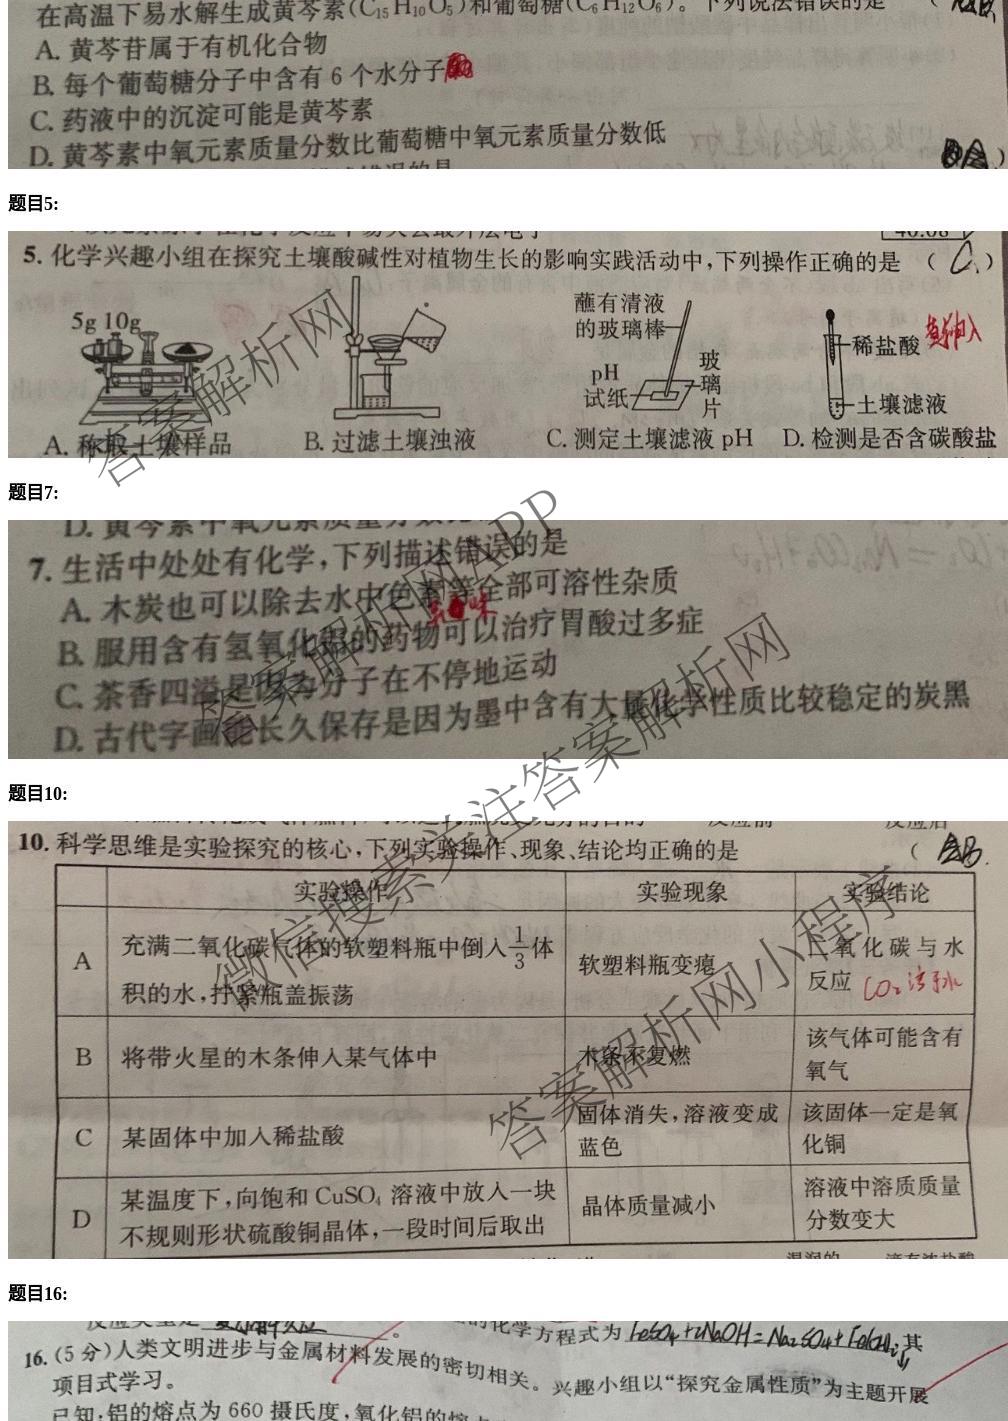 在高温下易水解生成黄芩素(C₁₅H₁₀O₅)和葡萄糖(C₆H₁₂O₆)。下列说法错误的是 (
A. 黄芩苷属于有机化合物
B. 每个葡萄糖分子中含有 6 个水分子
C. 药液中的沉淀可能是黄芩素
D. 黄芩素中氧元素质量分数比葡萄糖中氧元素质量分数低
)
题目5:
40.08
5. 化学兴趣小组在探究土壤酸碱性对植物生长的影响实践活动中,下列操作正确的是 ( C )
5g 10g
蘸有清液
的玻璃棒
pH
试纸
玻
璃
片
稀盐酸
土壤滤液
A. 称取土壤样品 B. 过滤土壤浊液 C. 测定土壤滤液 pH D. 检测是否含碳酸盐
题目7:
7. 生活中处处有化学,下列描述错误的是
A. 木炭也可以除去水中色素等全部可溶性杂质
B. 服用含有氢氧化铝的药物可以治疗胃酸过多症
C. 茶香四溢是因为分子在不停地运动
D. 古代字画能长久保存是因为墨中含有大量化学性质比较稳定的炭黑
题目10:
10. 科学思维是实验探究的核心,下列实验操作、现象、结论均正确的是 ( B.
实验操作 实验现象 实验结论
A 充满二氧化碳气体的软塑料瓶中倒入1/3体积的水,拧紧瓶盖振荡 软塑料瓶变瘪 二氧化碳与水反应 CO₂溶于水
B 将带火星的木条伸入某气体中 木条不复燃 该气体可能含有氧气
C 某固体中加入稀盐酸 固体消失,溶液变成蓝色 该固体一定是氧化铜
D 某温度下,向饱和 CuSO₄ 溶液中放入一块不规则形状硫酸铜晶体,一段时间后取出 晶体质量减小 溶液中溶质质量分数变大
题目16:
的化学方程式为 FeSO₄+2NaOH=Na₂SO₄+Fe(OH)₂↓
其
16. (5 分)人类文明进步与金属材料发展的密切相关。兴趣小组以“探究金属性质”为主题开展
项目式学习。
已知:铝的熔点为 660 摄氏度,氧化铝的熔点
答案解析网
答案解析网APP
微信搜索关注答案解析网
答案解析网小程序